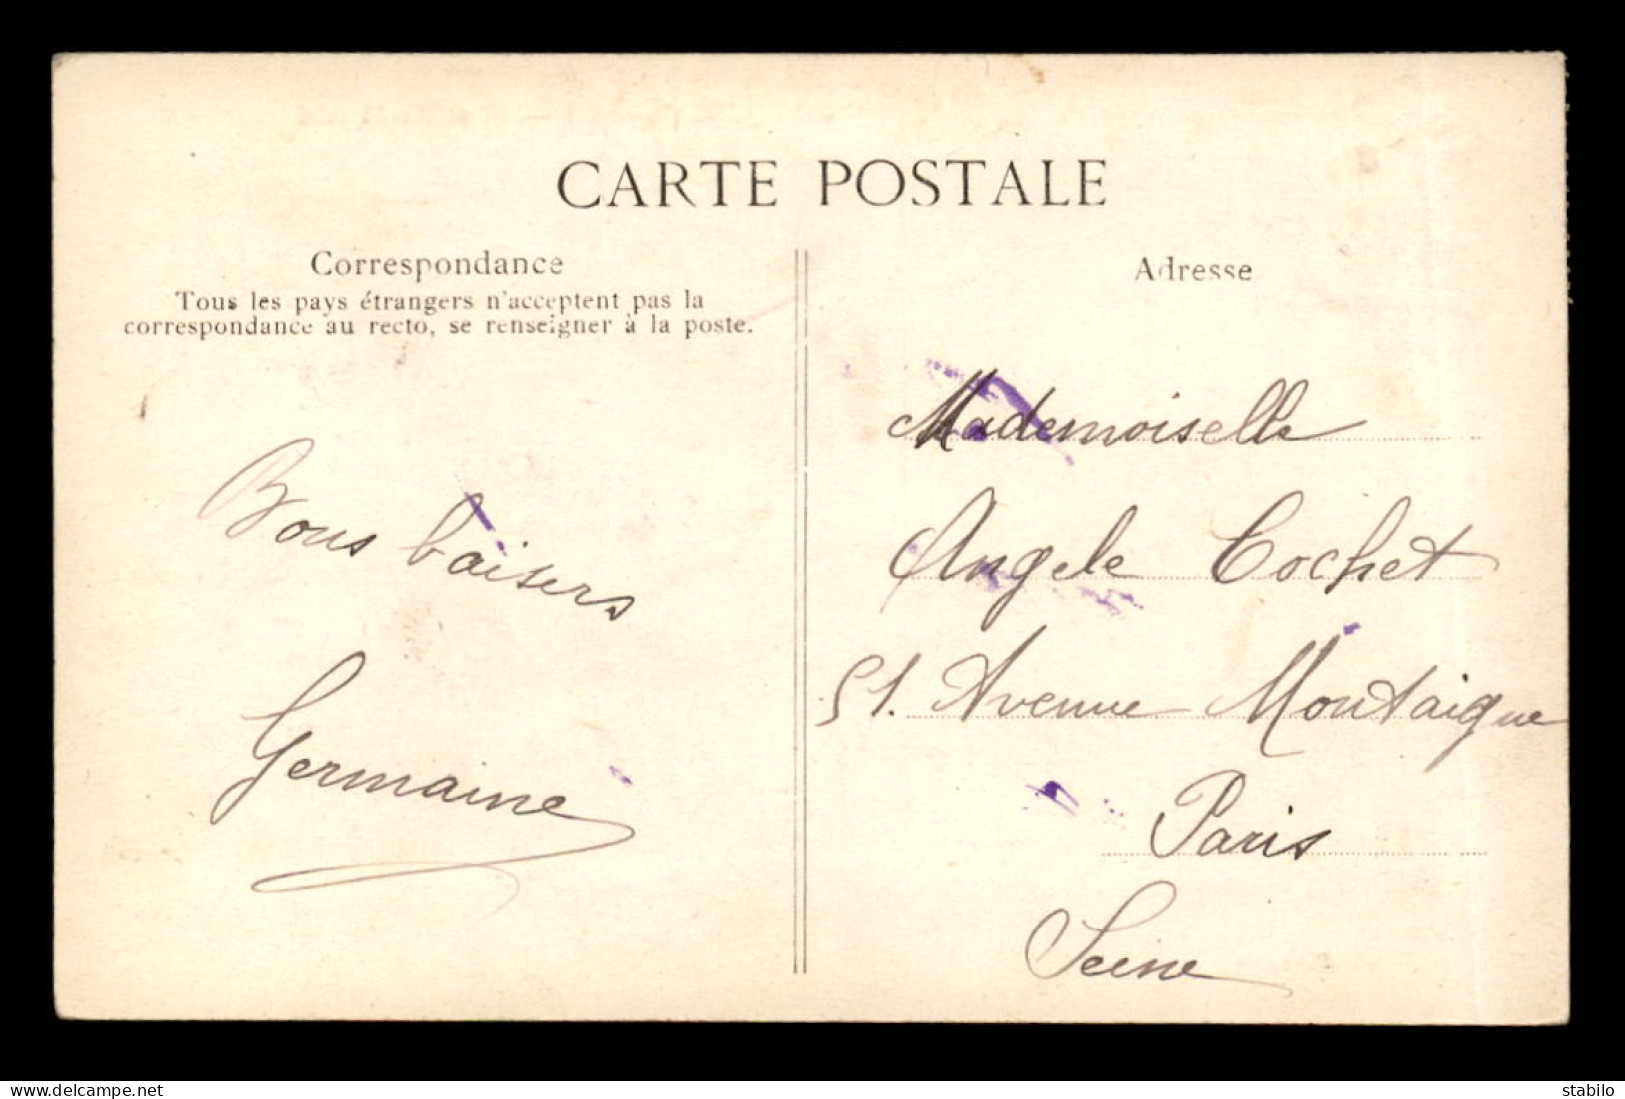 CARTE POSTALE
Correspondance
Tous les pays étrangers n'acceptent pas la
correspondance au recto, se renseigner à la poste.
Bons baisers
Germaine
Adresse
Mademoiselle
Angele Cochet
51. Avenue Montaigne
Paris
Seine
delcampe.net
stabilo